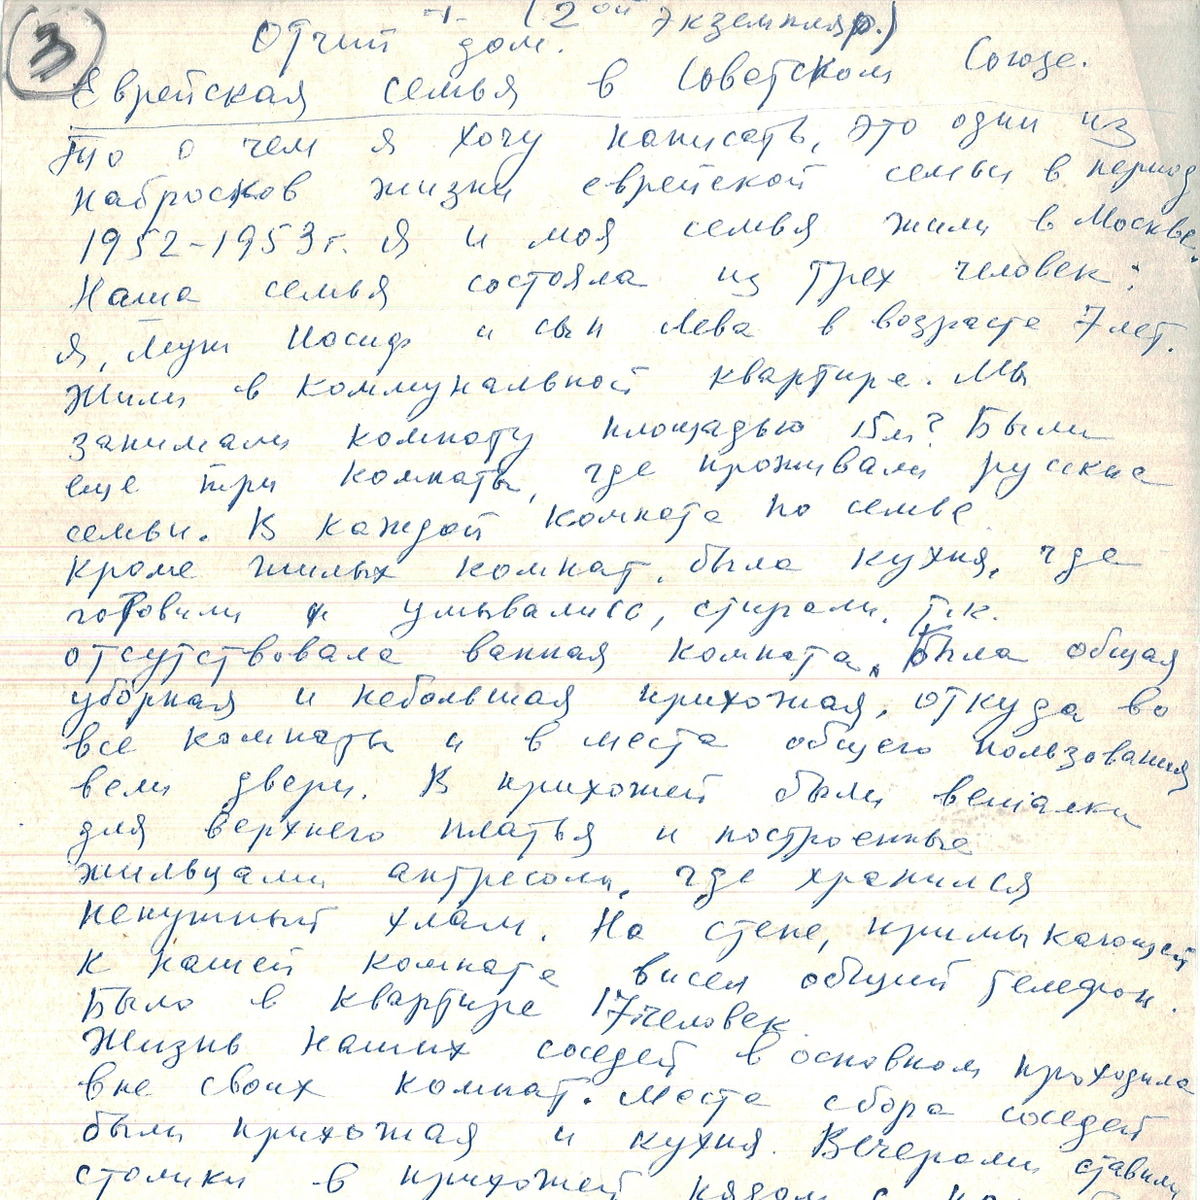 3
(2ой экземпляр.)
Отчий дом.
Еврейская семья в Советском Союзе.
То о чем я хочу написать, это один из
набросков жизни еврейской семьи в период
1952-1953г. Я и моя семья жили в Москве.
Наша семья состояла из трех человек:
я, муж Иосиф и сын Лева в возрасте 7 лет.
Жили в коммунальной квартире. Мы
занимали комнату площадью 15м² Были
еще три комнаты, где проживали русские
семьи. В каждой комнате по семье.
Кроме жилых комнат, была кухня, где
готовили и умывались, стирали, т.к.
отсутствовала ванная комната, была общая
уборная и небольшая прихожая, откуда во
все комнаты и в места общего пользования
вели двери. В прихожей были вешалки
для верхнего платья и построенные
жильцами антресоли, где хранился
ненужный хлам. На стене, примыкающей
к нашей комнате висел общий телефон.
Было в квартире 17 человек.
Жизнь наших соседей в основном проходила
вне своих комнат. Места сбора соседей
были прихожая и кухня. Вечерами ставили
столики в прихожей рядом с